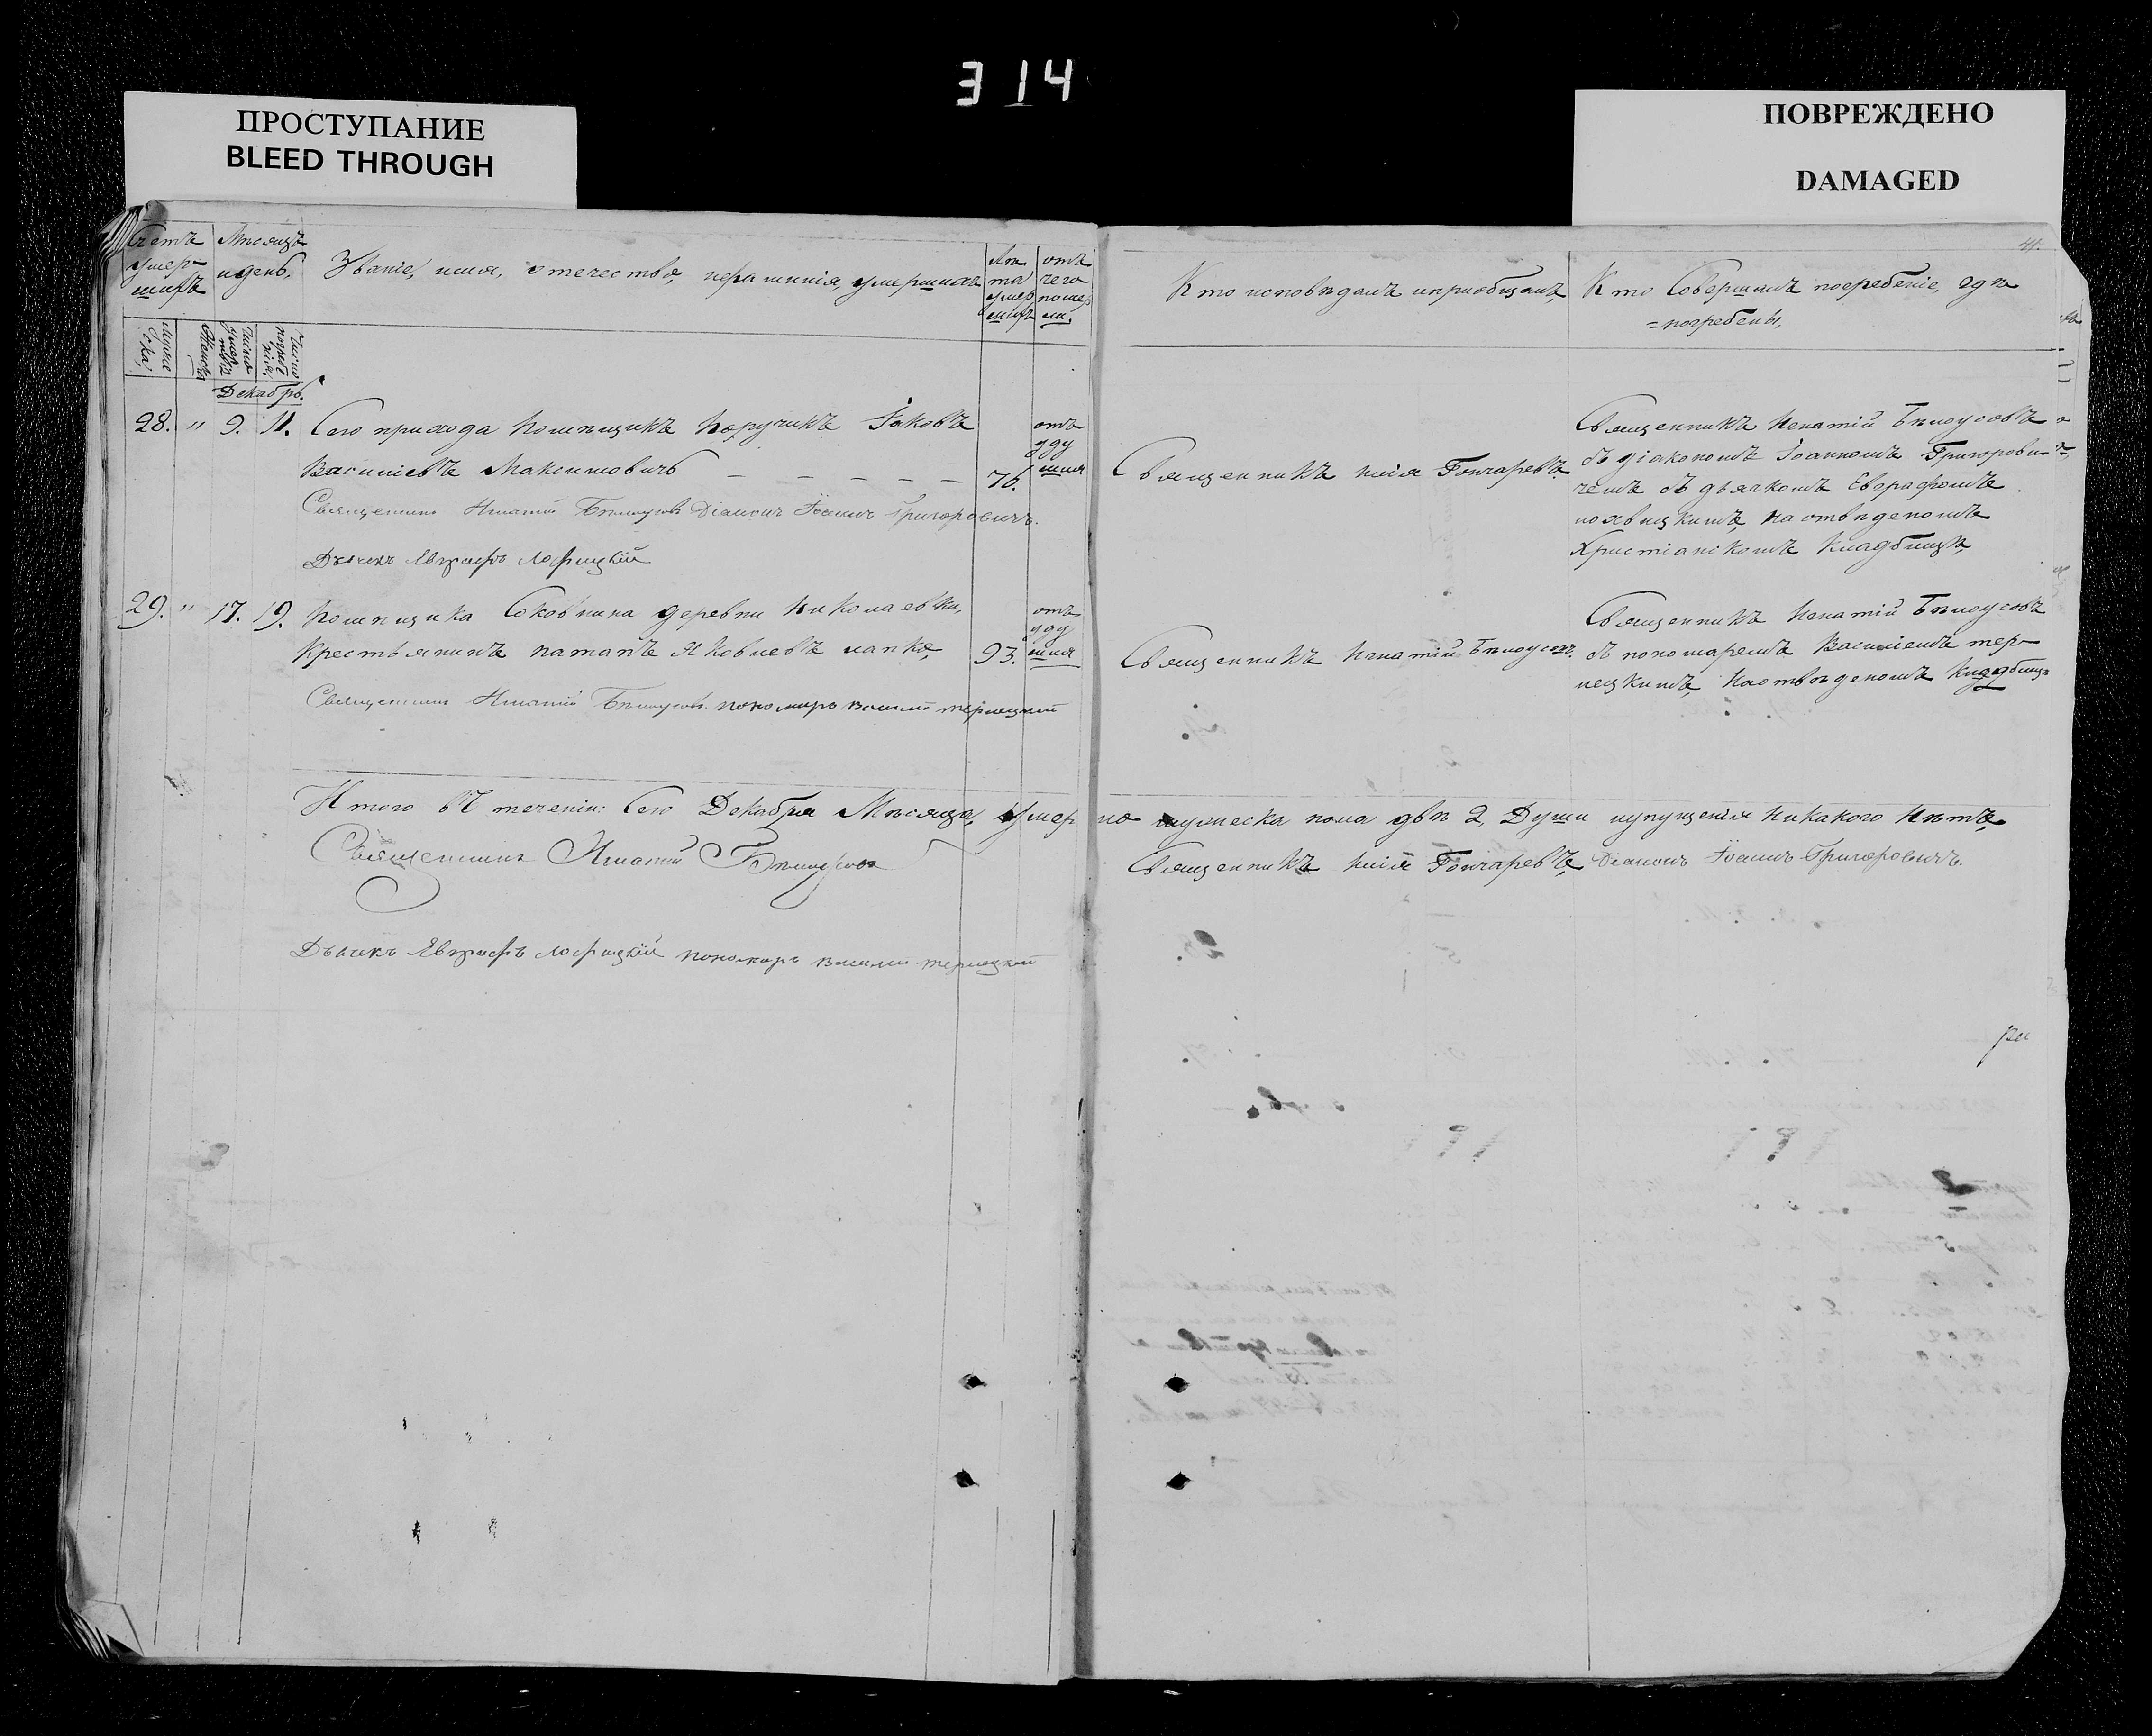 314
ПРОСТУПАНИЕ
BLEED THROUGH
ПОВРЕЖДЕНО
DAMAGED
41.
Счетъ умер-шихъ
Мѣсяцъ и день,
Званіе, имя, отечество, и фамилія, умершихъ
Лѣта умершихъ
отъ чего померли.
Кто исповѣдалъ и приобщалъ,
Кто Совершалъ погребеніе, гдѣ
=погребены,
Мужеска,
Женска
Число
Число
Декабрь.
28. " 9. 11. Сего прихода Помѣщикъ Поручикъ Іаковъ
Василіевъ Максимовичъ — — — — — 76.
отъ
уду
шия
Священникъ Илія Гончаревъ.
Священникъ Игнатій Бѣлоусовъ
съ діакономъ Іоанномъ Григорови-
чемъ съ дьячкомъ Евграфомъ
на отведеномъ
Христіанскомъ Кладбищѣ,
Священникъ Игнатій Бѣлоусовъ Діаконъ Іоаннъ Григоровичъ.
Дьячекъ Евграфъ
29. " 17. 19. Помѣщика Соковнина деревни Николаевки,
Крестьянинъ Патапъ Яковлевъ Лапка, 93.
отъ
уду
шия
Священникъ Игнатій Бѣлоусовъ.
Священникъ Игнатій Бѣлоусовъ
съ пономаремъ Василіемъ тер-
нецкимъ, На отведеномъ Кладбищѣ
Священникъ Игнатій Бѣлоусовъ. пономарь Василій тернецкий
Итого въ теченіи: Сего Декабря Мѣсяца, умерло мужеска пола двѣ 2, Души упущенія никакого нѣтъ,
Священникъ Игнатій Бѣлоусовъ
Священникъ Илія Гончаревъ, Діаконъ Іоаннъ Григоровичъ.
Дьячекъ Евграфъ пономарь Василій тернецкий